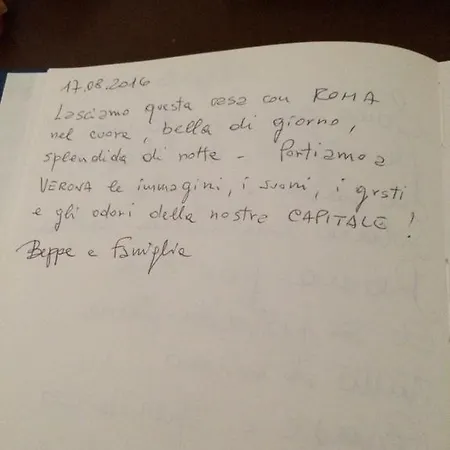 17.08.2016
Lasciamo questa casa con ROMA
nel cuore, bella di giorno,
splendida di notte - Portiamo a
VERONA le immagini, i suoni, i gusti
e gli odori della nostra CAPITALE!
Beppe e famiglia